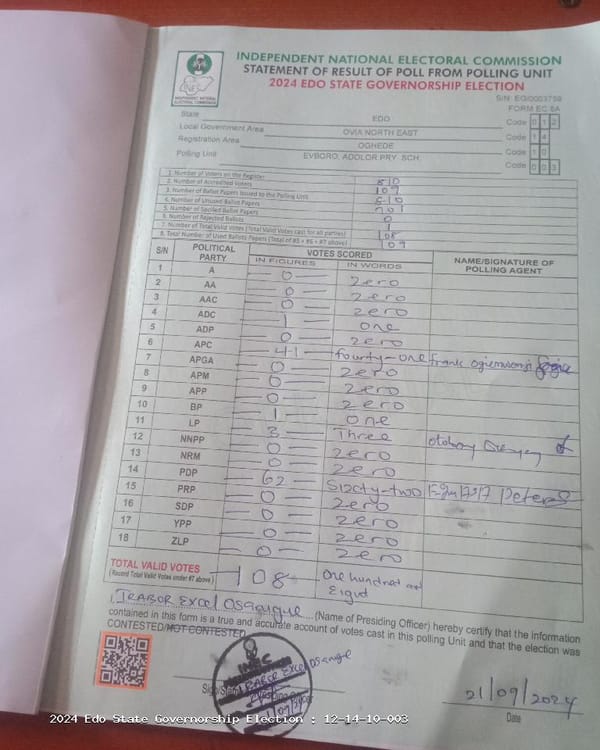 INDEPENDENT NATIONAL ELECTORAL COMMISSION
STATEMENT OF RESULT OF POLL FROM POLLING UNIT
2024 EDO STATE GOVERNORSHIP ELECTION
S/N: EG/0003759
FORM EC 8A
State EDO Code 0 1 2
Local Government Area OVIA NORTH EAST Code 1 4
Registration Area OGHEDE Code 1 0
Polling Unit EVBORO, ADOLOR PRY. SCH. Code 0 0 3
1. Number of Voters on the Register 810
2. Number of Accredited Voters 109
3. Number of Ballot Papers Issued to the Polling Unit 810
4. Number of Unused Ballot Papers 701
5. Number of Spoiled Ballot Papers 0
6. Number of Rejected Ballots 1
7. Number of Total Valid Votes (Total Valid Votes cast for all parties) 108
8. Total Number of Used Ballots Papers (Total of #5 + #6 + #7 above) 109
S/N POLITICAL PARTY VOTES SCORED NAME/SIGNATURE OF POLLING AGENT
IN FIGURES IN WORDS
1 A 0 Zero
2 AA 0 Zero
3 AAC 0 Zero
4 ADC 1 one
5 ADP 0 Zero
6 APC 41 fourty-one Frank
7 APGA 0 Zero
8 APM 0 Zero
9 APP 0 Zero
10 BP 1 one
11 LP 3 Three
12 NNPP 0 Zero
13 NRM 0 Zero
14 PDP 62 Sixty-two Peters
15 PRP 0 Zero
16 SDP 0 Zero
17 YPP 0 Zero
18 ZLP 0 Zero
TOTAL VALID VOTES 108 One hundred and
(Record Total Valid Votes under #7 above)
I, IRABOR Excel Osaigue (Name of Presiding Officer) hereby certify that the information
contained in this form is a true and accurate account of votes cast in this polling Unit and that the election was
CONTESTED/NOT CONTESTED
INEC
21/09/2024
Date
2024 Edo State Governorship Election : 12-14-10-003